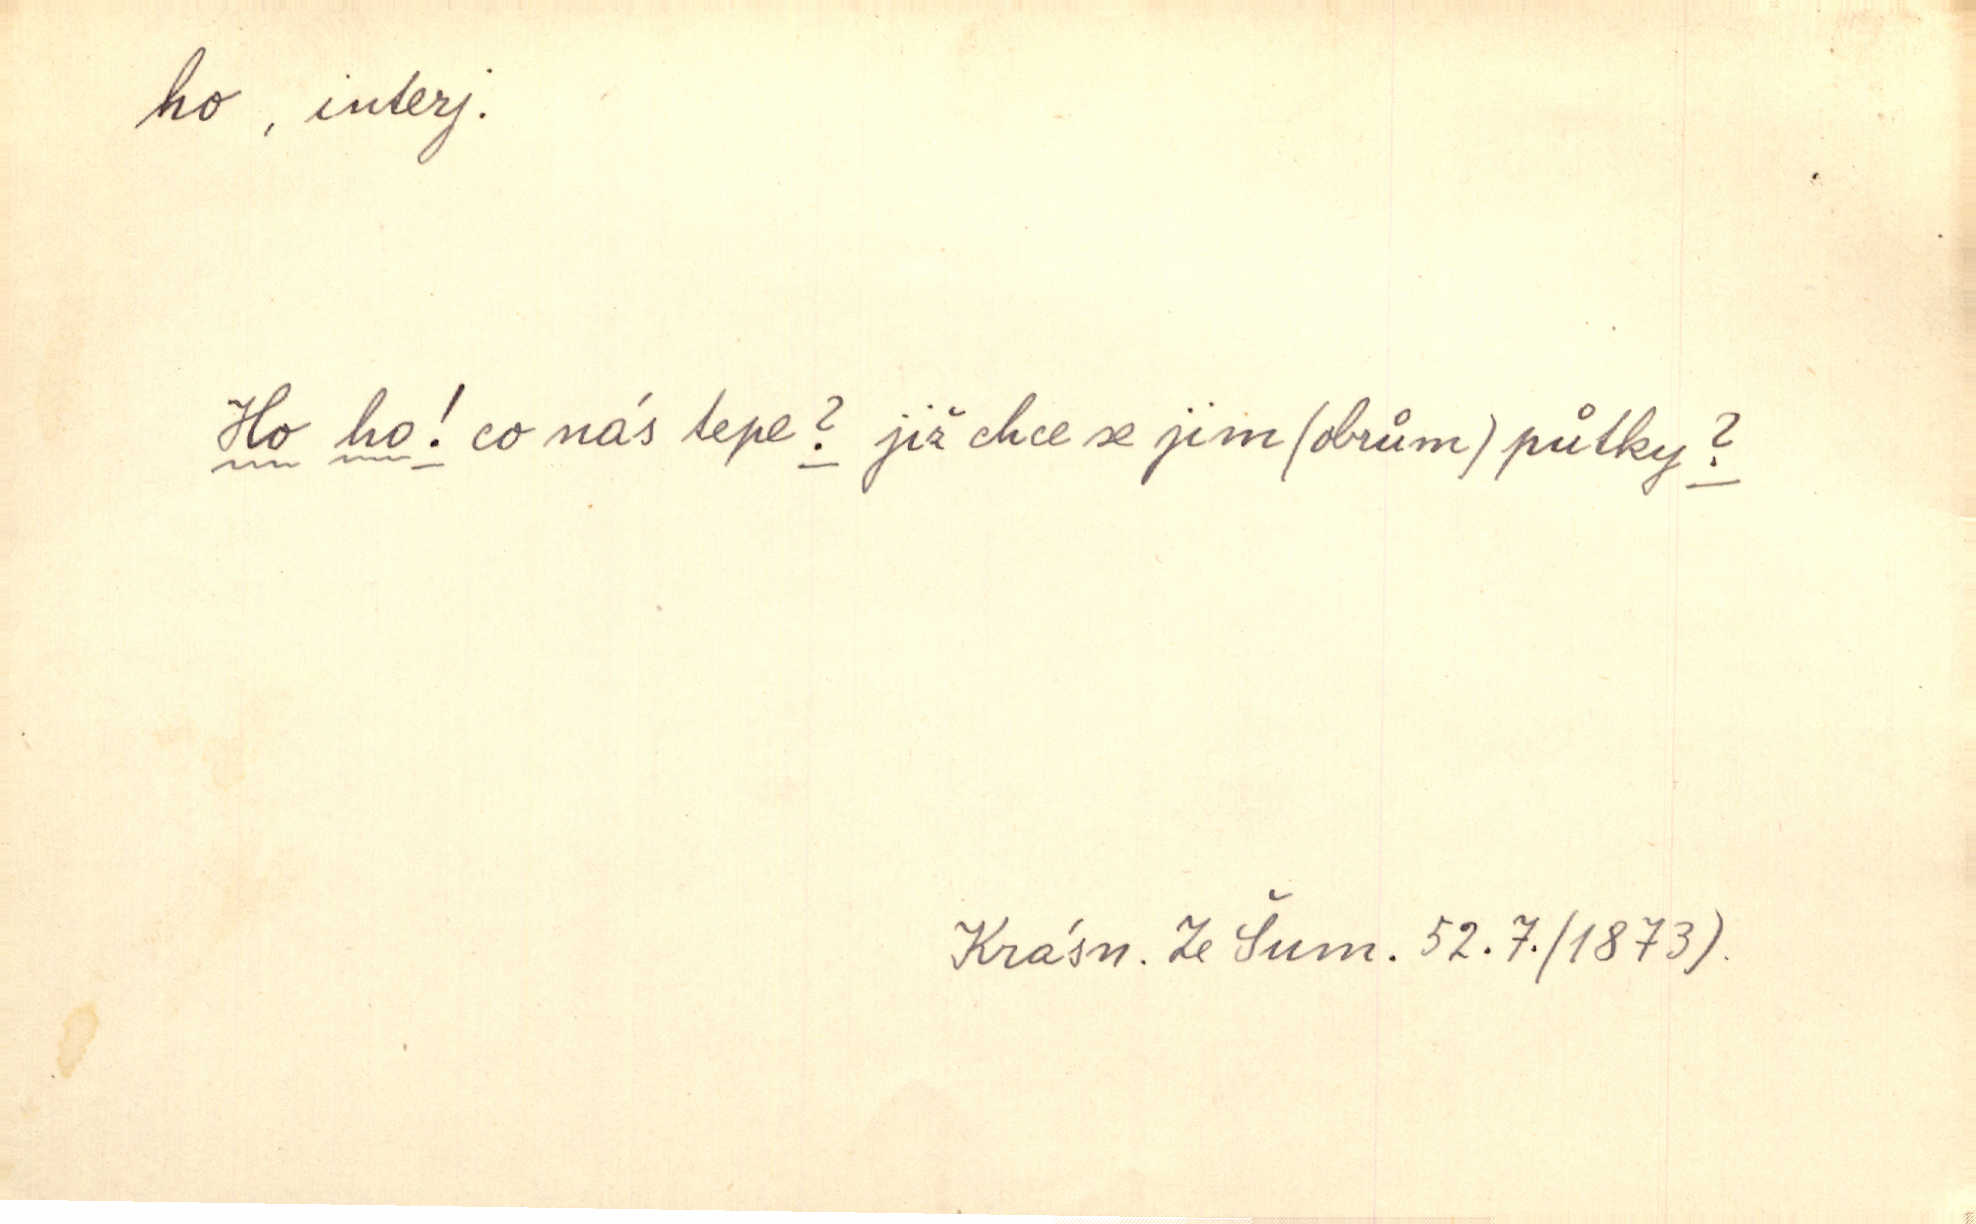 ho, interj.
Ho ho! co nás tepe? již chce se jim (obrům) půtky?
Krásn. Ze Šum. 52.7. (1873).